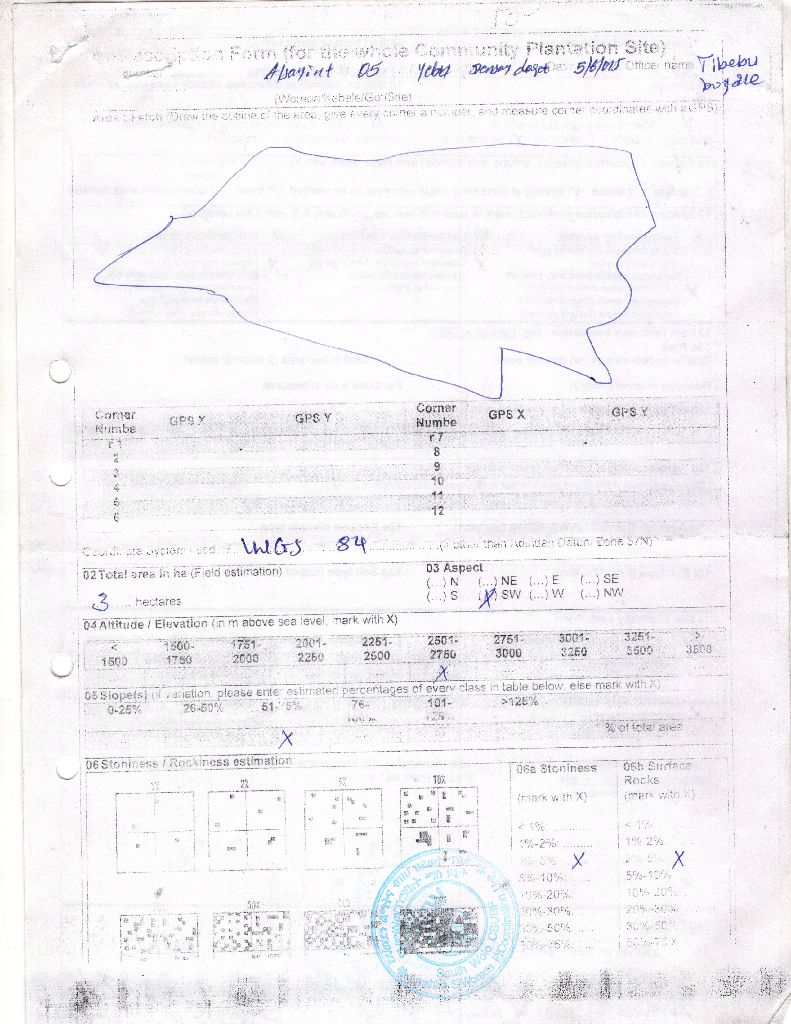 13
Form (for the whole Community Plantation Site)
Abayint 05 5/6/015 Officer name Tibebu
(Woreda/Kebele/Got/Site)
Area Sketch (Draw the outline of the area, give every corner a number, and measure corner coordinates with a GPS)
Corner Numbe GPS X GPS Y Corner Numbe GPS X GPS Y
r 1 r 7
2 8
3 9
4 10
5 11
6 12
Coordinate System used: WGS 84 (if other than Adindan Datum, Zone 37N)
02 Total area in ha (Field estimation) 03 Aspect
(...) N (...) NE (...) E (...) SE
3 .... hectares (...) S (X) SW (...) W (...) NW
04 Altitude / Elevation (in m above sea level, mark with X)
< 1500- 1751- 2001- 2251- 2501- 2751- 3001- 3251- >
1500 1750 2000 2250 2500 2750 3000 3250 3500 3500
X
05 Slope(s) (if variation, please enter estimated percentages of every class in table below, else mark with X)
0-25% 26-50% 51-75% 76- 101- >125%
100% 125%
% of total area
X
06 Stoniness / Rockiness estimation 06a Stoniness 06b Surface
Rocks
1% 2% 5% 10%
(mark with X) (mark with X)
< 1% < 1%
1%-2% 1%-2%
2%-5% X 2%-5% X
5%-10% 5%-10%
10%-20% 10%-20%
20%-30% 20%-30%
30%-50% 30%-50%
50%-75% 50%-75%